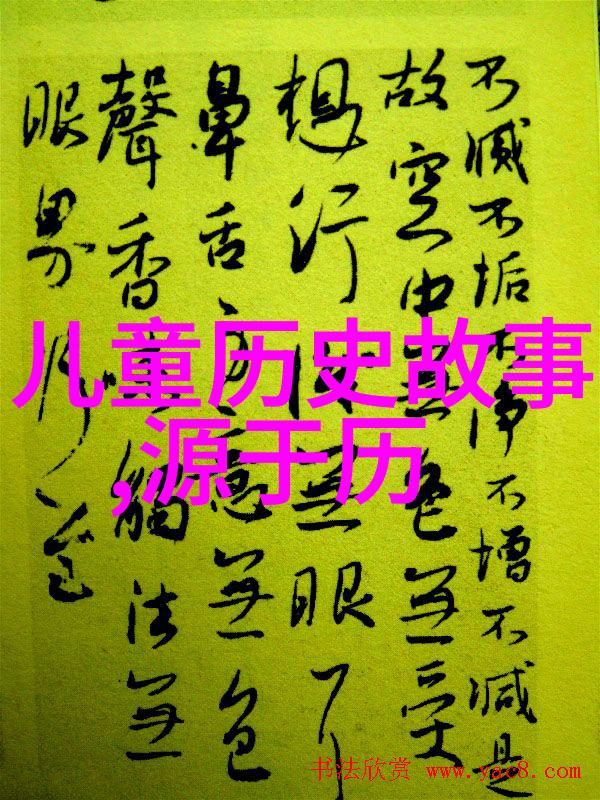 不滅不垢不淨不增不減是
故空中無色無受
想行識無眼耳
鼻舌身意無色
聲香味觸法無
眼界乃至
儿童历史故事
,源于历
书法欣赏 www.yac8.com